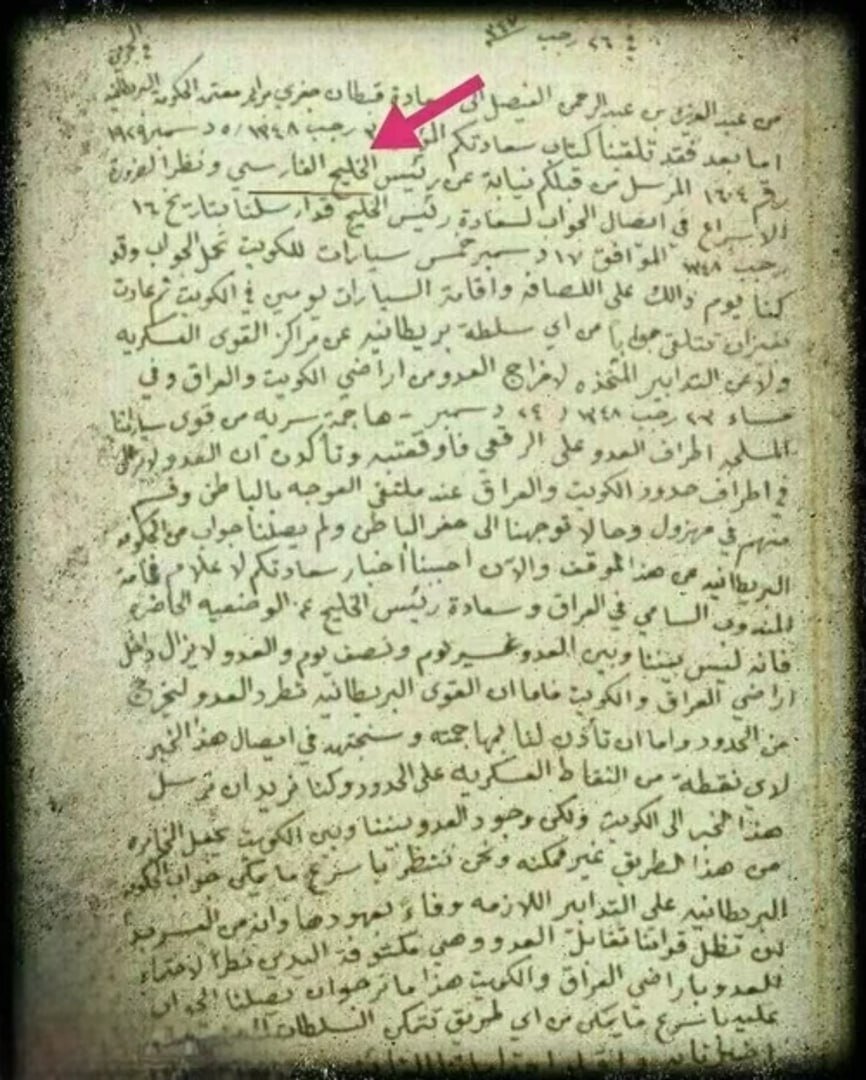 في ٢٦ رجب
من عبد العزيز بن عبد الرحمن الفيصل الى سعادة قبطان جفري برابر معتمد الحكومة البريطانية
اما بعد فقد تلقينا كتاب سعادتكم رجب ١٣٤٨ / ٥ دسمبر ١٩٢٩
رقم ١٦٠٤ المرسل من قبلكم نيابة عن رئيس الخليج الفارسي ونظرا لضرورة
الاسراع في ايصال الجواب لسعادة رئيس الخليج قد ارسلنا بتاريخ ١٦
رجب ١٣٤٨ الموافق ١٧ دسمبر خمس سيارات للكويت تحمل الجواب وقد
كنا يوم ذالك على اللصافه واقامة السيارات يومين في الكويت ثم عادت
بغير ان تتلقى جوابا من اي سلطة بريطانيه عن مراكز القوى العسكريه
ولا عن التدابير المتخذه لاخراج العدو من اراضي الكويت والعراق وفي
مساء ٢٣ رجب ١٣٤٨ / ٢٤ دسمبر - هاجمة سريه من قوى سياراتنا
المسلحه اطراف العدو على الرقعي فاوقعتبه وتأكدن ان العدو لا يزال
في اطراف حدود الكويت والعراق عند ملتقى العوجه بالباطن وقسم
منهم في مهزول وحالا توجهنا الى حفر الباطن ولم يصلنا جواب من الحكومه
البريطانيه عن هذا الموقف والآن احببنا اخبار سعادتكم لاعلام فخامة
المندوب السامي في العراق وسعادة رئيس الخليج عن الوضعيه الحاضره
فانه ليس بيننا وبين العدو غير يوم ونصف يوم والعدو لا يزال داخل
اراضي العراق والكويت فاما ان القوى البريطانيه تطرد العدو ليخرج
من الحدود واما ان تأذن لنا بمهاجمته وسنجتهد في ايصال هذا الخبر
لاي نقطة من النقاط العسكريه على الحدود وكنا نريد ان نرسل
هذا الخبر الى الكويت ولكن وجود العدو بيننا وبين الكويت يجعل المخابره
من هذا الطريق غير ممكنه ونحن ننتظر باسرع ما يمكن جواب الحكومه
البريطانيه على التدابير اللازمه وفاء بعهودها وانه من الغريب
ان تظل قواتنا تقابل العدو وهي مكتوفة اليدين نظرا لاحتماء
العدو باراضي العراق والكويت هذا ما نرجو ان يصلنا الجواب
عليه باسرع ما يمكن من اي طريق تتمكن السلطات